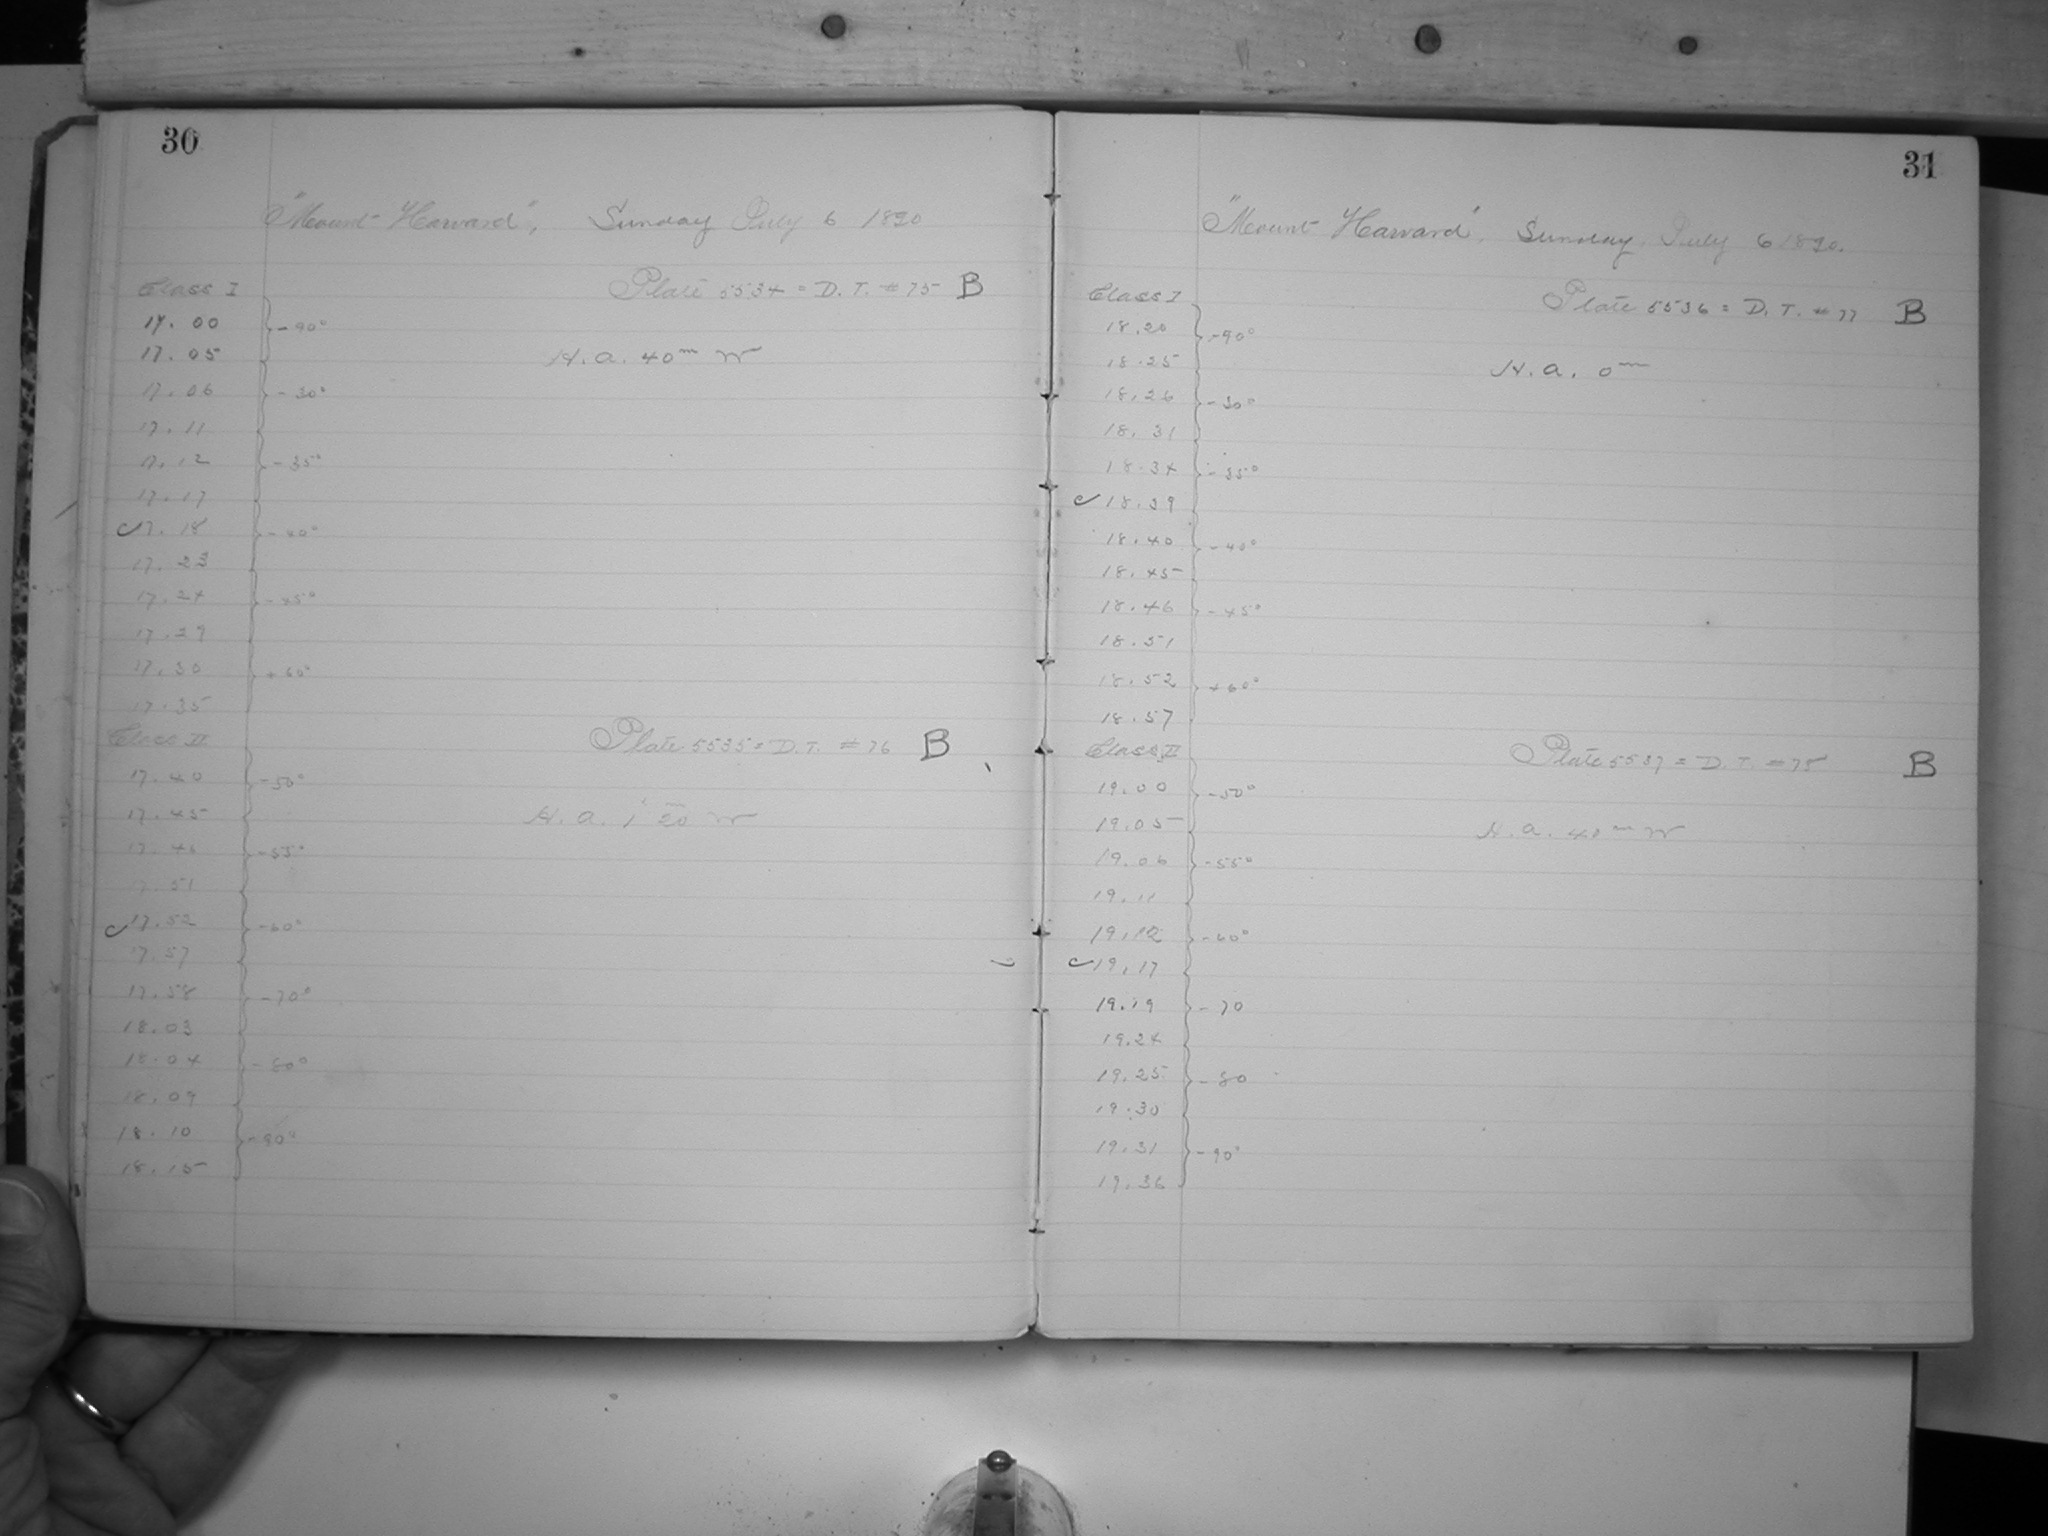 30
"Mount Harvard", Sunday July 6 1890
Class I Plate 5534 = D. T. # 75 B
17. 00 - 90°
17. 05 H. a. 40m W
17. 06 - 30°
17. 11
17. 12 - 35°
17. 17
17. 18 - 40°
17. 23
17. 24 - 45°
17. 29
17. 30 + 60°
17. 35
Class II Plate 5535 = D. T. # 76 B
17. 40 - 50°
17. 45 H. a. 1h 20m W
17. 46 - 55°
17. 51
17. 52 - 60°
17. 57
17. 58 - 70°
18. 03
18. 04 - 80°
18. 09
18. 10 - 90°
18. 15
31
"Mount Harvard", Sunday, July 6 1890.
Class I Plate 5536 = D. T. # 77 B
18. 20 - 90°
18. 25 H. a. 0m
18. 26 - 30°
18. 31
18. 34 - 35°
18. 39
18. 40 - 40°
18. 45
18. 46 - 45°
18. 51
18. 52 + 60°
18. 57
Class II Plate 5537 = D. T. # 75 B
19. 00 - 50°
19. 05 H. a. 40m W
19. 06 - 55°
19. 11
19. 12 - 60°
19. 17
19. 19 - 70
19. 24
19. 25 - 80
19. 30
19. 31 - 90°
19. 36